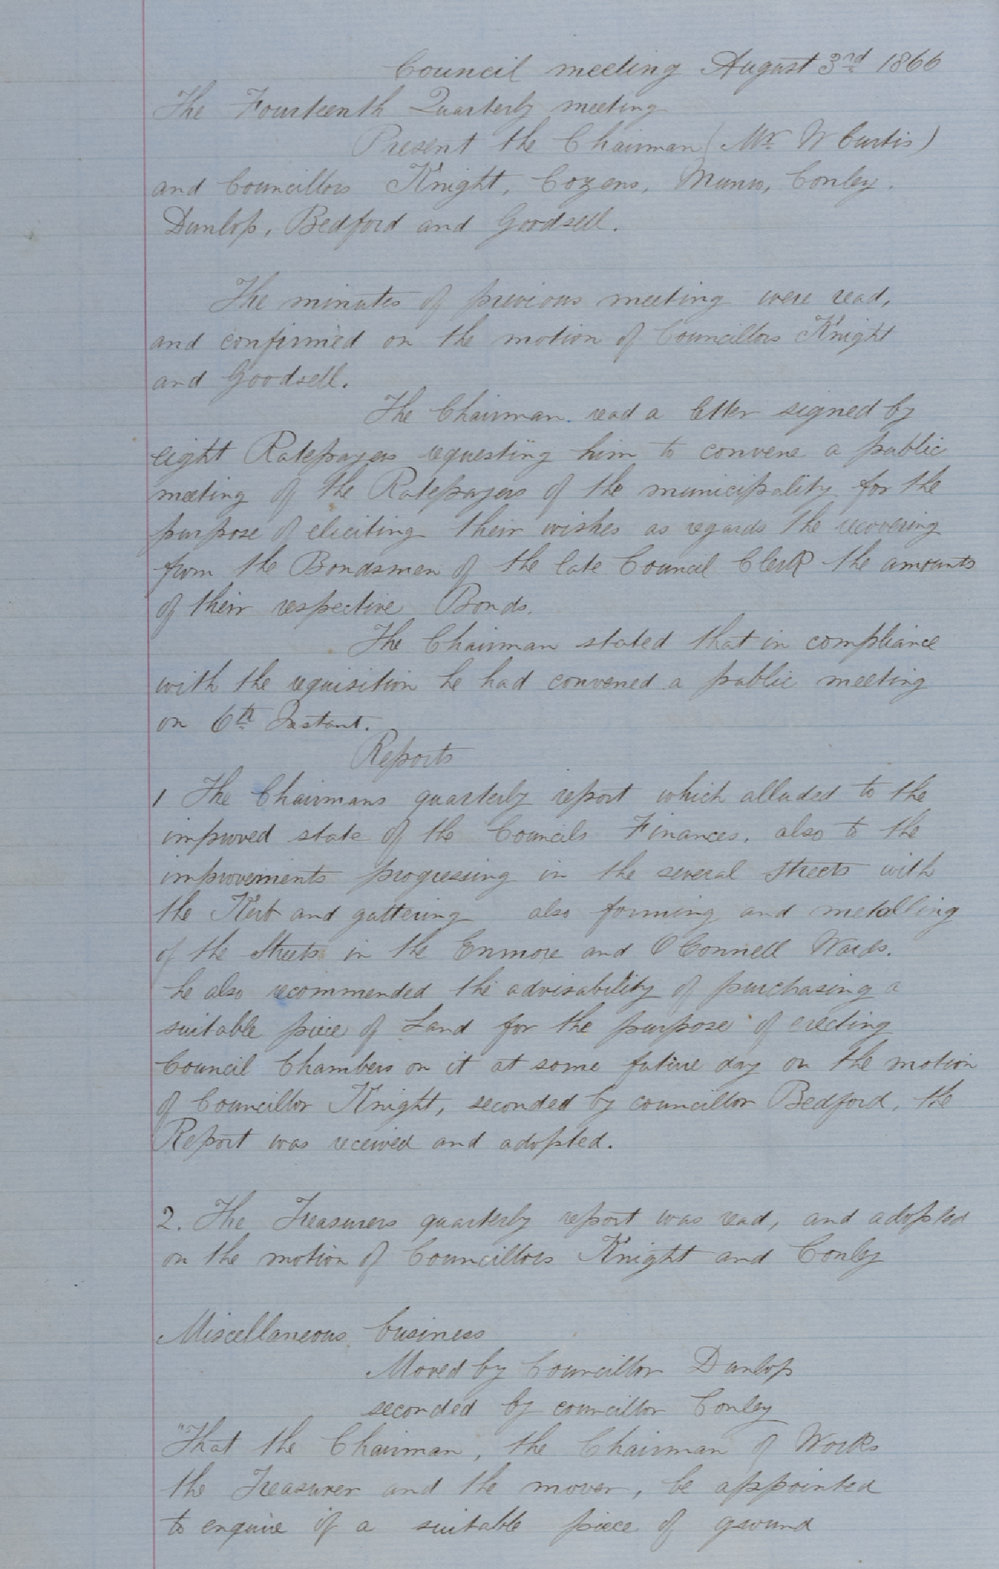 Council meeting August 3rd 1866
The Fourteenth Quarterly meeting
Present the Chairman (Mr. W Curtis)
and Councillors Knight, Cozens, Munn, Conley,
Dunlop, Bedford and Goodsell.
The minutes of previous meeting were read,
and confirmed on the motion of Councillors Knight
and Goodsell.
The Chairman read a letter signed by
eight Ratepayers requesting him to convene a public
meeting of the Ratepayers of the municipality for the
purpose of eliciting their wishes as regards the recovering
from the Bondsmen of the late Council Clerk the amounts
of their respective Bonds.
The Chairman stated that in compliance
with the requisition he had convened a public meeting
on 6th Instant.
Reports
1 The Chairmans quarterly report which alluded to the
improved state of the Councils Finances, also to the
improvements progressing in the several Streets with
the Kerb and guttering also forming and metalling
of the Streets in the Enmore and O'Connell Wards.
he also recommended the advisability of purchasing a
suitable piece of Land for the purpose of erecting
Council Chambers on it at some future day on the motion
of Councillor Knight, seconded by councillor Bedford, the
Report was received and adopted.
2. The Treasurers quarterly report was read, and adopted
on the motion of Councillors Knight and Conley
Miscellaneous business
Moved by Councillor Dunlop
seconded by councillor Conley
"That the Chairman, the Chairman of Works
the Treasurer and the mover, be appointed
to enquire if a suitable piece of ground